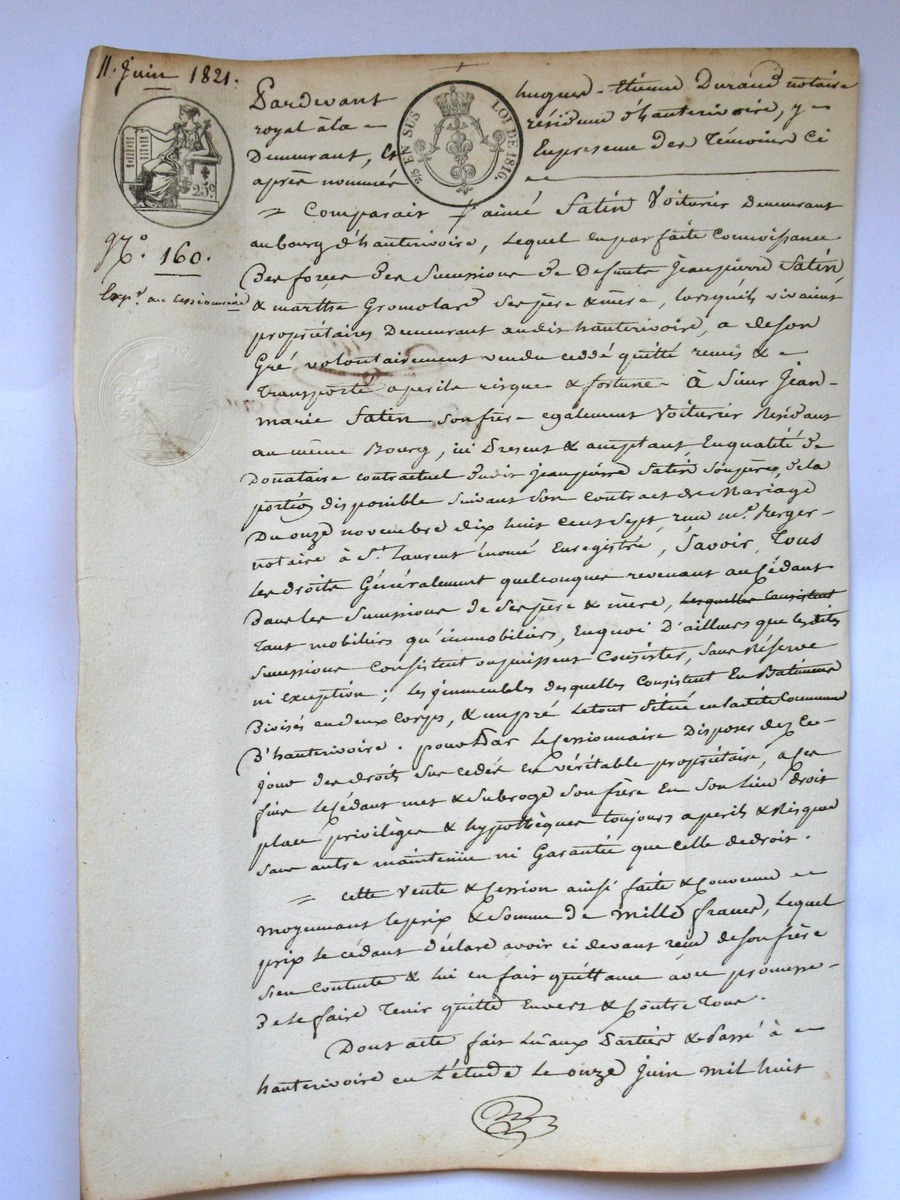 11. Juin 1821.
Pardevant hugues-Étienne Durand notaire
royal à la résidence d'hauterivoire, y
Demeurant, Et En presence Des Témoins Ci
après nommés
2/5 EN SUS LOI DE 1816.
25.c
N.o 160.
Exp.n au cessionnaire
= Comparait s.r aimé Satin Voiturier Demeurant
au bourg d'hauterivoire, Lequel en parfaite Connoissance
Des forces Des Successions De Defunts Jeanpierre Satin,
& marthe Gromolard Ses père & mère, lorsqu'ils vivaient
propriétaires Demeurant audit hauterivoire, a de Son
Gré volontairement vendu ceddé quitté remis &
Transporté a perils risques & fortune À Sieur Jean-
marie Satin Son frère egalement Voiturier Résidant
au même Bourg, ici Présent & acceptant En qualité de
Donataire contractuel dudit Jeanpierre Satin Son père, de la
portion disponible Suivant Son Contract de Mariage
Du onze novembre dix huit cent Sept, reçu m.e Berger
notaire à S.t Laurent Enregistré, Savoir, Tous
Les droits Généralement quelconques revenant au Cédant
Dans les Successions de Ses père & mère, Lesquelles Consistent
Tant mobiliers qu'immobiliers, En quoi D'ailleurs que les dites
Successions Consistent ou puissent Consister, Sans Réserve
ni Exception; Les immeubles desquelles Consistent En Batiments
Divisés en deux Corps, & un pré Le tout Situé en la dite Commune
D'hauterivoire. pour Par Le Cessionnaire Disposer dez Ce
jour des droits Sus cédés En véritable propriétaire, a ces
fins Le Cédant met & Subroge Son frère En Son Lieu droit
place privilèges & hypothèques toujours a perils & Risques
Sans autre maintenue ni Garantie que celle de droit.
= Cette Vente & Cession ainsi faite & Convenue
moyennant Le prix & Somme De mille francs, Lequel
prix Le cédant Déclare avoir ci devant reçu de Son frère
S'en Contente & lui en fait quittance avec promesse
De Le faire Tenir quitte Envers & Contre Tous.
Dont acte fait Lu aux Parties & Passé à
hauterivoire en L'étude Le onze Juin mil huit